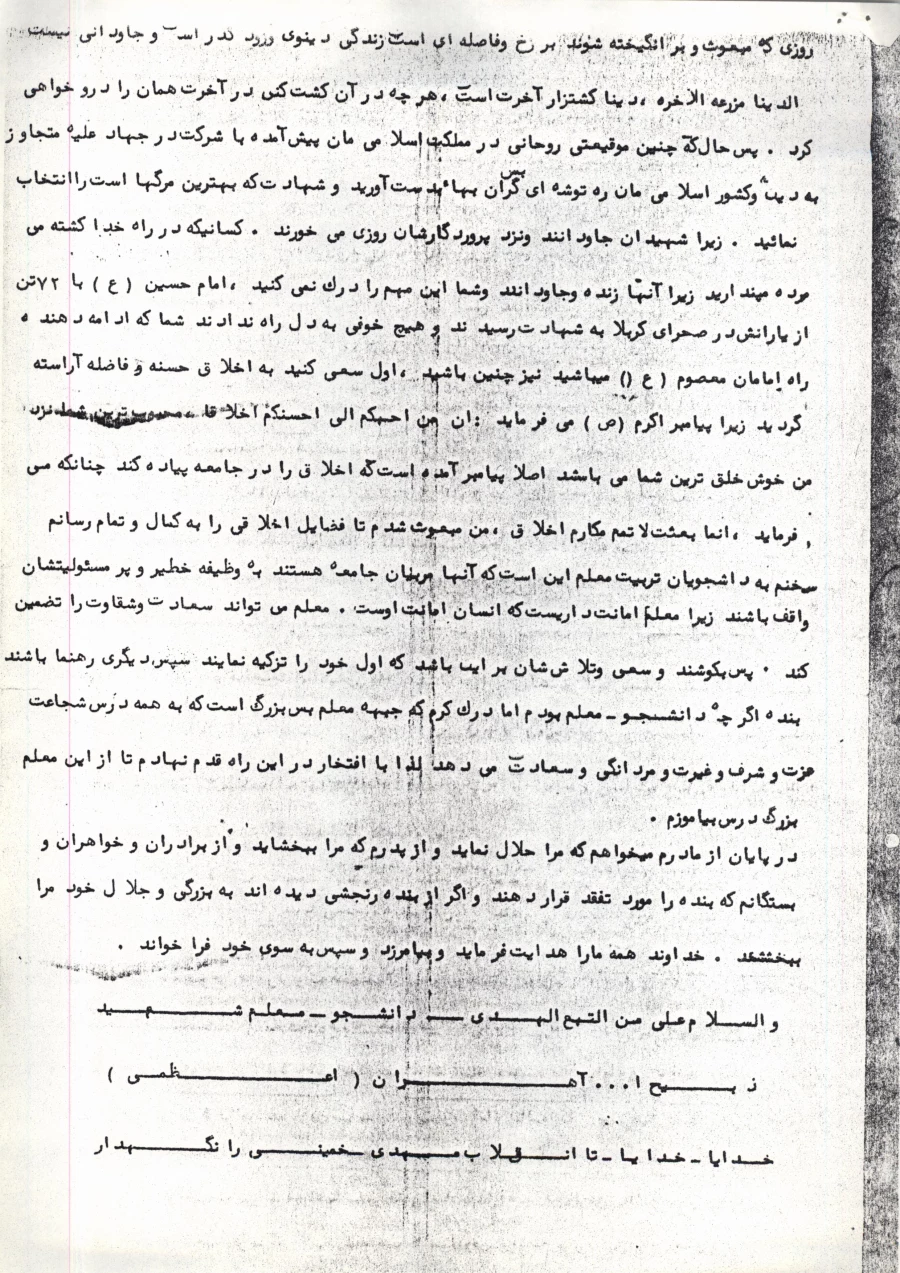 روزی که مبعوث و بر انگیخته شوند برزخ وفاصله ای است زندگی دینوی زود گذر است و جاودانی نیست
الدینا مزرعه الاخره ، دینا کشتزار آخرت است ، هر چه در آن کشت کنی در آخرت همان را درو خواهی
کرد . پس حال که چنین موقیعتی روحانی در مملکت اسلامی مان پیش آمده با شرکت در جهاد علیه متجاوز
به دین وکشور اسلامی مان ره توشه ای بس گران بها بدست آورید و شهادت که بهترین مرگها است را انتخاب
نمائید . زیرا شهیدان جاودانند ونزد پروردگارشان روزی می خورند . کسانیکه در راه خدا کشته می
مرده مپندارید زیرا آنها زنده وجاودانند وشما این مهم را درك نمی کنید ، امام حسین ( ع ) با ۷۲تن
از یارانش در صحرای کربلا به شهادت رسیدند و هیچ خوفی به دل راه ندادند شما که ادامه دهنده
راه امامان معصوم ( ع ) میباشید نیز چنین باشید ، اول سعی کنید به اخلاق حسنه و فاضله آراسته
گردید زیرا پیامبر اکرم (ص ) می فرماید : ان من احبکم الی احسنکم اخلاقا ، محبوب ترین شما نزد
من خوش خلق ترین شما می باسشد اصلا پیامبر آمده است که اخلاق را در جامعه پیاده کند چنانکه می
فرماید ، انما بعثت لاتمم مکارم اخلاق ، من مبعوث شدم تا فضایل اخلاقی را به کمال و تمام رسانم
سخنم به داشجویان تربیت معلم این است که آنها مربیان جامعه هستند به وظیفه خطیر و پر مسئولیتشان
واقف باشند زیرا معلم امانت داریست که انسان امانت اوست . معلم می تواند سعادت وشقاوت را تضمین
کند . پس بکوشند و سعی وتلاششان بر این باشد که اول خود را تزکیه نمایند سپس دیگری رهنما باشند
بنده اگر چه دانشجو ـ معلم بودم اما درك کرم که جبهه معلم بس بزرگ است که به همه درس شجاعت
عزت و شرف و غیرت و مردانگی و سعادت می دهد لذا با افتخار در این راه قدم نهادم تا از این معلم
بزرگ درس بیاموزم .
در پایان از مادرم میخواهم که مرا حلال نماید و از پدرم که مرا ببخشاید و از برادران و خواهران و
بستگانم که بنده را مورد تفقد قرار دهند و اگر از بنده رنجشی دیده اند به بزرگی و جلال خود مرا
ببخشند . خداوند همه مارا هدایت فرماید و بیامرزد و سپس به سوی خود فرا خواند .
والسلام علی من التبع الهدی ـ دانشجو ـ معلم شهید
ذبیح ا... آهنگران ( اعظمی )
خدایا ـ خدایا ـ تا انقلاب مهدی خمینی را نگهدار